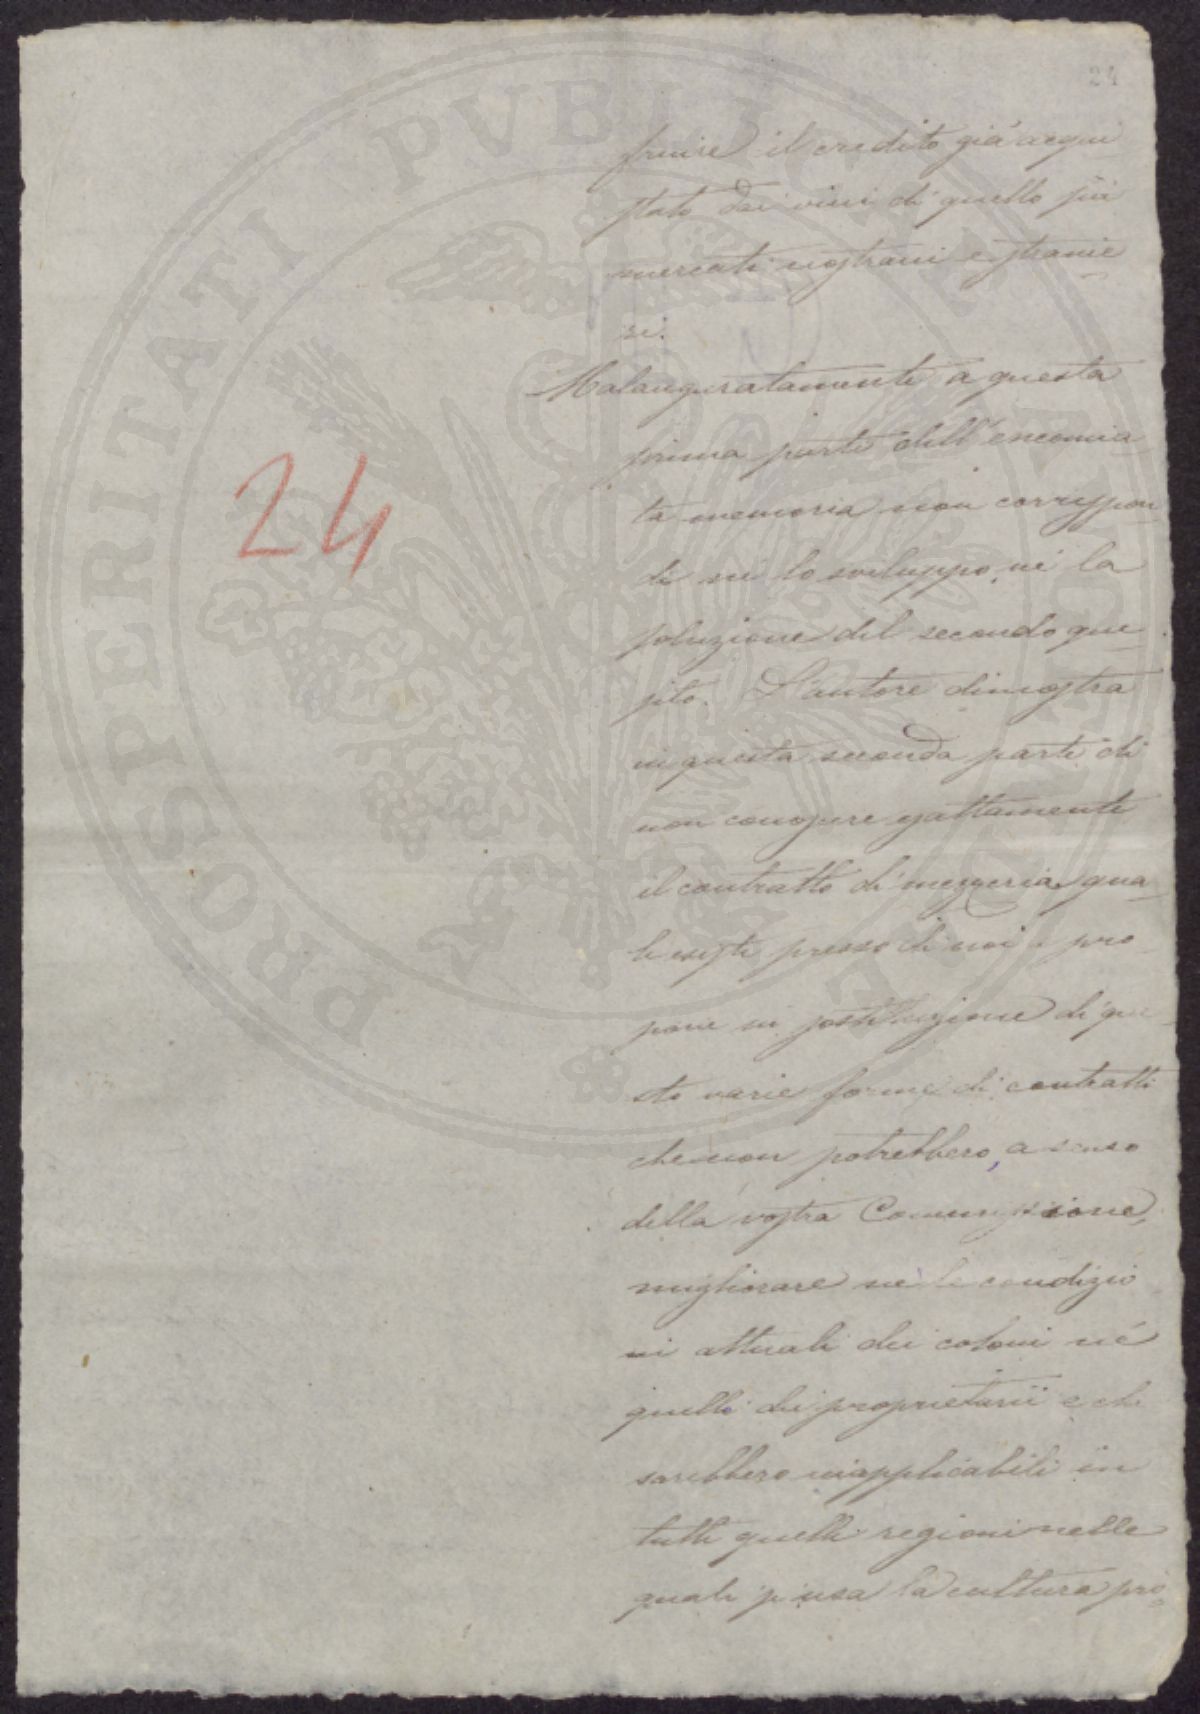 24
fruire il credito già acqui
stato dai vini di quello sui
mercati nostrani e stranie
ri.
Malauguratamente a questa
prima parte dell'encomia
ta memoria non corrispon
de nè lo sviluppo, nè la
soluzione del secondo que
sito. L'autore dimostra
in questa seconda parte di
non conoscere esattamente
il contratto di mezzeria qua
le esiste presso di noi e pro
pone in sostituzione di que
sto varie forme di contratti
che non potrebbero, a senso
della vostra Commissione,
migliorare nè le condizio
ni attuali dei coloni nè
quelle dei proprietarii e che
sarebbero inapplicabili in
tutte quelle regioni nelle
quali s'usa la cultura pro
24
PROSPERITATI PVBLICAE AVGENDAE